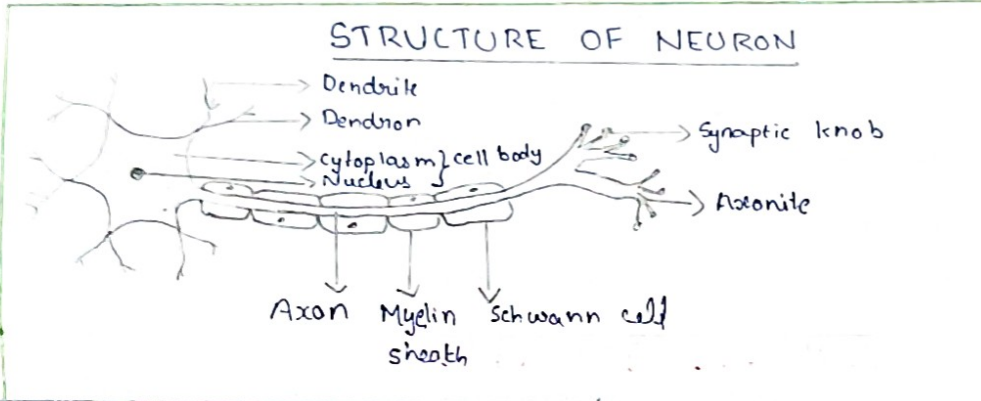 STRUCTURE OF NEURON
Dendrite
Dendron
Cytoplasm } cell body
Nucleus
Synaptic knob
Axonite
Axon Myelin Schwann cell
sheath